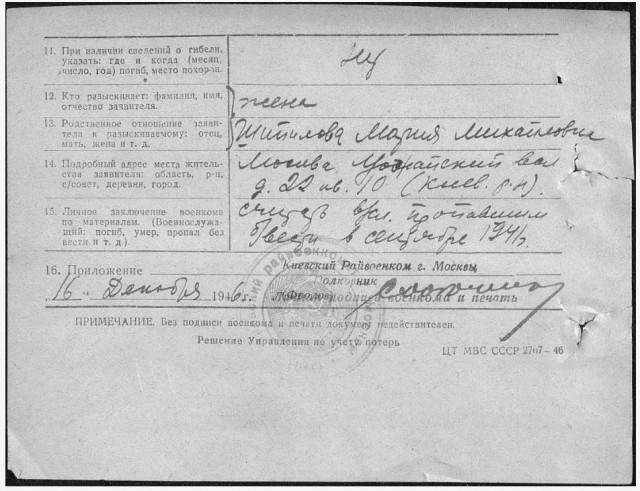 11. При наличии сведений о гибели,
указать: где и когда (месяц,
число, год) погиб, место похорон.
12. Кто разыскивает: фамилия, имя,
отчество заявителя.
жена
13. Родственное отношение заяви-
теля к разыскиваемому: отец,
мать, жена и т. д.
Шипилова Мария Михайловна
14. Подробный адрес места житель-
ства заявителя: область, р-н,
с/совет, деревня, город.
Москва вал
д. 22 кв. 10 (Киев. р-н).
15. Личное заключение военкома
по материалам. (Военнослужа-
щий: погиб, умер, пропал без
вести и т. д.)
пропавшим
б/вести в сентябре 1941г.
16. Приложение
Киевский Райвоенком г. Москвы
Полковник
16 " Декабря 1946 г.
военкома и печать
ПРИМЕЧАНИЕ. Без подписи военкома и печати документ недействителен.
Решение Управления по учету потерь
ЦТ МВС СССР 2767—46